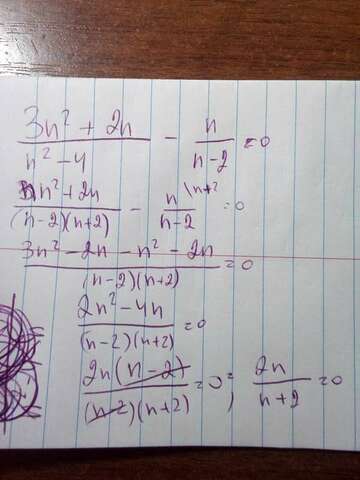 (3n² + 2n)/(n² - 4) - n/(n-2) = 0
(3n² + 2n)/((n-2)(n+2)) - n\n+2/(n-2) = 0
(3n² - 2n - n² - 2n)/((n-2)(n+2)) = 0
(2n² - 4n)/((n-2)(n+2)) = 0
(2n(n-2))/((n-2)(n+2)) = 0; 2n/(n+2) = 0